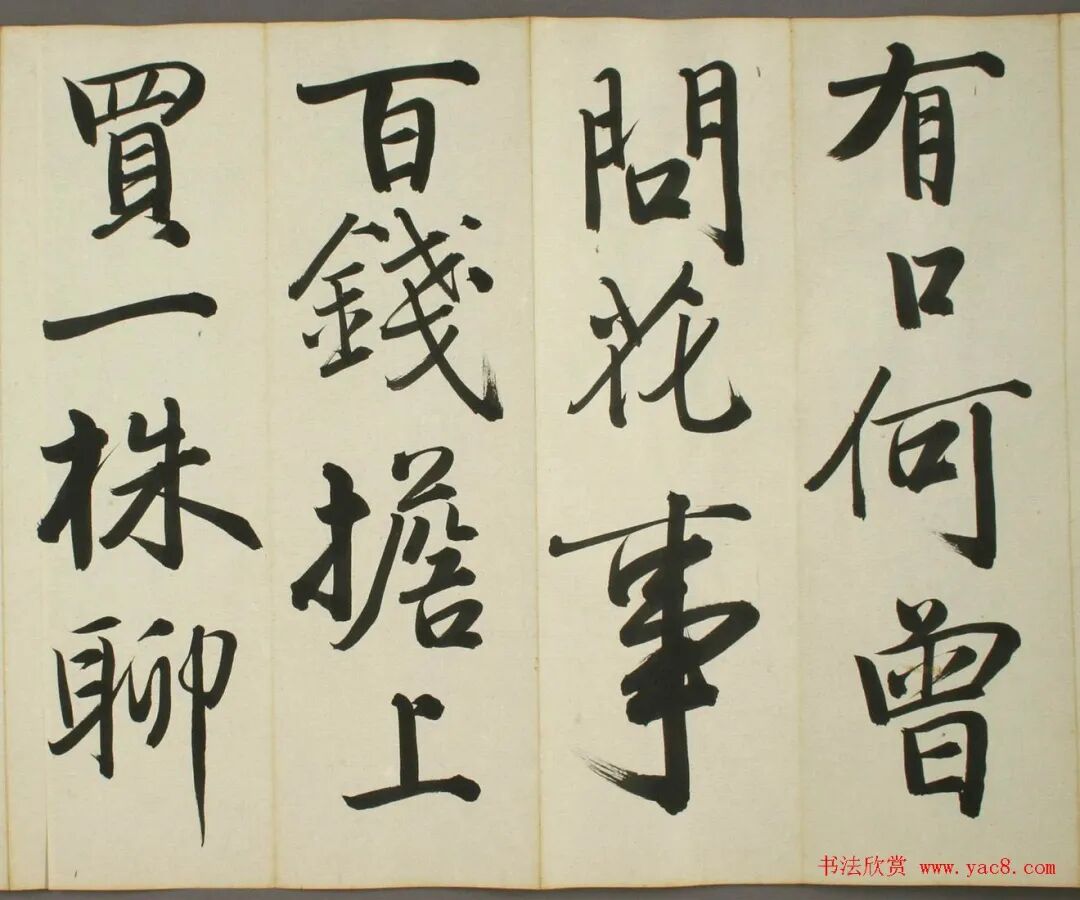 有口何曾
問花事
百錢擔上
買一株聊
书法欣赏 www.yac8.com